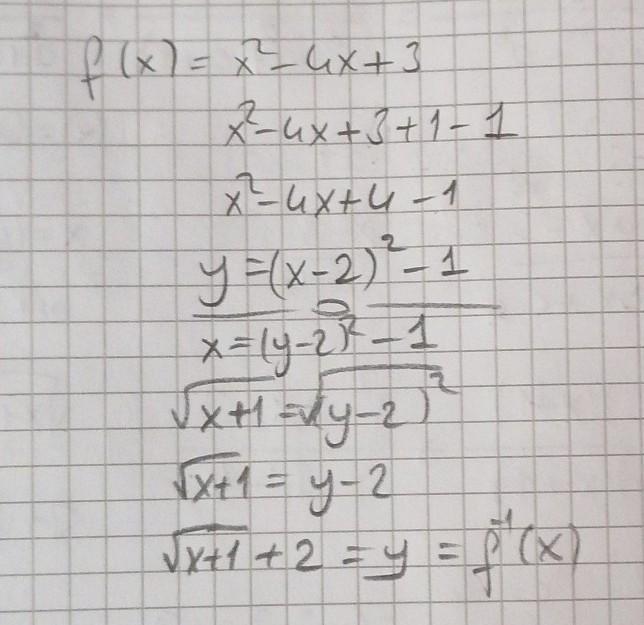 f(x) = x² - 4x + 3
x² - 4x + 3 + 1 - 1
x² - 4x + 4 - 1
y = (x - 2)² - 1
x = (y - 2)² - 1
√(x+1) = √(y - 2)²
√(x+1) = y - 2
√(x+1) + 2 = y = f⁻¹(x)